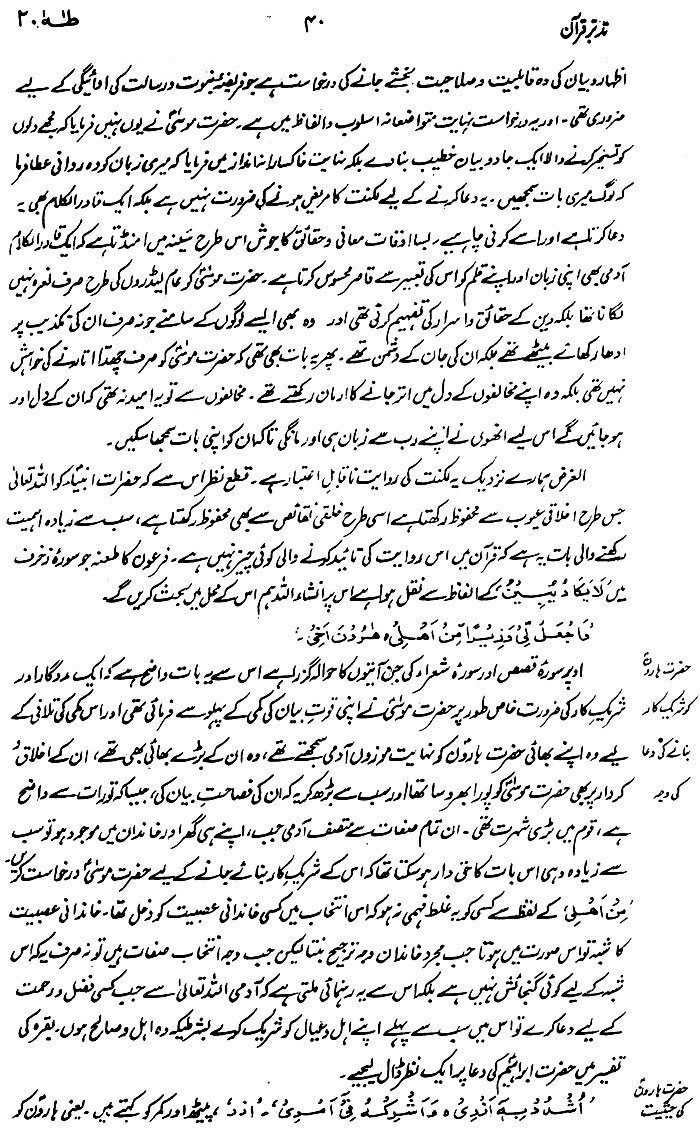 تدبر قرآن ۴۰ طٰہٰ ۲۰
اظہار و بیان کی وہ قابلیت و صلاحیت بخشے جانے کی درخواست ہے جو فریضۂ نبوت و رسالت کی ادائیگی کے لیے
ضروری تھی۔ اور یہ درخواست نہایت متواضعانہ اسلوب و الفاظ میں ہے۔ حضرت موسیٰؑ نے یوں نہیں فرمایا کہ مجھے دلوں
کو تسخیر کرنے والا ایک جادو بیان خطیب بنا دے بلکہ نہایت خاکسارانہ انداز میں فرمایا کہ میری زبان کو وہ روانی عطا فرما
کہ لوگ میری بات سمجھیں۔ یہ دعا کرنے کے لیے لکنت کا مریض ہونے کی ضرورت نہیں ہے بلکہ ایک قادر الکلام بھی یہ
دعا کرتا ہے اور اسے کرنی چاہیے۔ بسا اوقات معانی و حقائق کا جوش اس طرح سینہ میں امنڈتا ہے کہ ایک قادر الکلام
آدمی بھی اپنی زبان اور اپنے قلم کو اس کی تعبیر سے قاصر محسوس کرتا ہے۔ حضرت موسیٰؑ کو عام لیڈروں کی طرح صرف نعرہ نہیں
لگانا تھا بلکہ دین کے حقائق و اسرار کی تفہیم کرنی تھی اور وہ بھی ایسے لوگوں کے سامنے جو نہ صرف ان کی تکذیب پر
ادھار کھائے بیٹھے تھے بلکہ ان کی جان کے دشمن تھے۔ پھر یہ بات بھی تھی کہ حضرت موسیٰؑ کو صرف چھدا اتارنے کی خواہش
نہیں تھی بلکہ وہ اپنے مخالفوں کے دل میں اتر جانے کا ارمان رکھتے تھے۔ مخالفوں سے تو یہ امید نہ تھی کہ ان کے دل اور
ہو جائیں گے اس لیے انھوں نے اپنے رب سے زبان ہی اور مانگی تاکہ ان کو اپنی بات سمجھا سکیں۔
الغرض ہمارے نزدیک یہ لکنت کی روایت ناقابل اعتبار ہے۔ قطع نظر اس سے کہ حضرات انبیاء کو اللہ تعالیٰ
جس طرح اخلاقی عیوب سے محفوظ رکھتا ہے اسی طرح خلقی نقائص سے بھی محفوظ رکھتا ہے، سب سے زیادہ اہمیت
رکھنے والی بات یہ ہے کہ قرآن میں اس روایت کی تائید کرنے والی کوئی چیز نہیں ہے۔ فرعون کا طعنہ جو سورۂ زخرف
میں ’لَا يَكَادُ يُبِيْنُ‘ کے الفاظ سے نقل ہوا ہے اس پر انشاء اللہ ہم اس کے محل میں بحث کریں گے۔
’وَاجْعَلْ لِّي وَزِيْرًا مِّنْ اَهْلِي ہ هٰرُوْنَ اَخِيْ‘۔
حضرت ہارونؑ اوپر سورۂ قصص اور سورۂ شعراء کی جن آیتوں کا حوالہ گزرا ہے اس سے یہ بات واضح ہے کہ ایک مددگار اور
کو شریک کار شریک کار کی ضرورت خاص طور پر حضرت موسیٰؑ نے اپنی قوتِ بیان کی کمی کے پہلو سے فرمائی تھی اور اس کمی کی تلافی کے
بنانے کی دعا لیے وہ اپنے بھائی حضرت ہارونؑ کو نہایت موزوں آدمی سمجھتے تھے، وہ ان کے بڑے بھائی بھی تھے، ان کے اخلاق و
کی وجہ کردار پر بھی حضرت موسیٰؑ کو پورا بھروسا تھا اور سب سے بڑھ کر یہ کہ ان کی فصاحتِ بیان کی، جیسا کہ تورات سے واضح
ہے، قوم میں بڑی شہرت تھی۔ ان تمام صفات سے متصف آدمی جب، اپنے ہی گھر اور خاندان میں موجود ہو تو سب
سے زیادہ وہی اس بات کا حق دار ہو سکتا تھا کہ اس کے شریک کار بنائے جانے کے لیے حضرت موسیٰؑ درخواست کریں۔
’مِنْ اَهْلِيْ‘ کے لفظ سے کسی کو یہ غلط فہمی نہ ہو کہ اس انتخاب میں کسی خاندانی عصبیت کو دخل تھا۔ خاندانی عصبیت
کا شبہ تو اس صورت میں ہوتا جب مجرد خاندان وجہ ترجیح بنتا لیکن جب وجہ انتخاب صفات ہیں تو نہ صرف یہ کہ اس
شبہ کے لیے کوئی گنجائش نہیں ہے بلکہ اس سے یہ رہنمائی ملتی ہے کہ آدمی اللہ تعالیٰ سے جب کسی فضل و رحمت
کے لیے دعا کرے تو اس میں سب سے پہلے اپنے اہل و عیال کو شریک کرے بشرطیکہ وہ اہل و صالح ہوں۔ بقرہ کی
تفسیر میں حضرت ابراہیمؑ کی دعا پر ایک نظر ڈال لیجیے۔
حضرت ہارونؑ
کی حیثیت ’اُشْدُدْ بِهٖٓ اَزْرِيْ ہ وَاَشْرِكْهُ فِيْٓ اَمْرِيْ‘۔ ’ازر‘، پیٹھ اور کمر کو کہتے ہیں۔ یعنی ہارونؑ کو